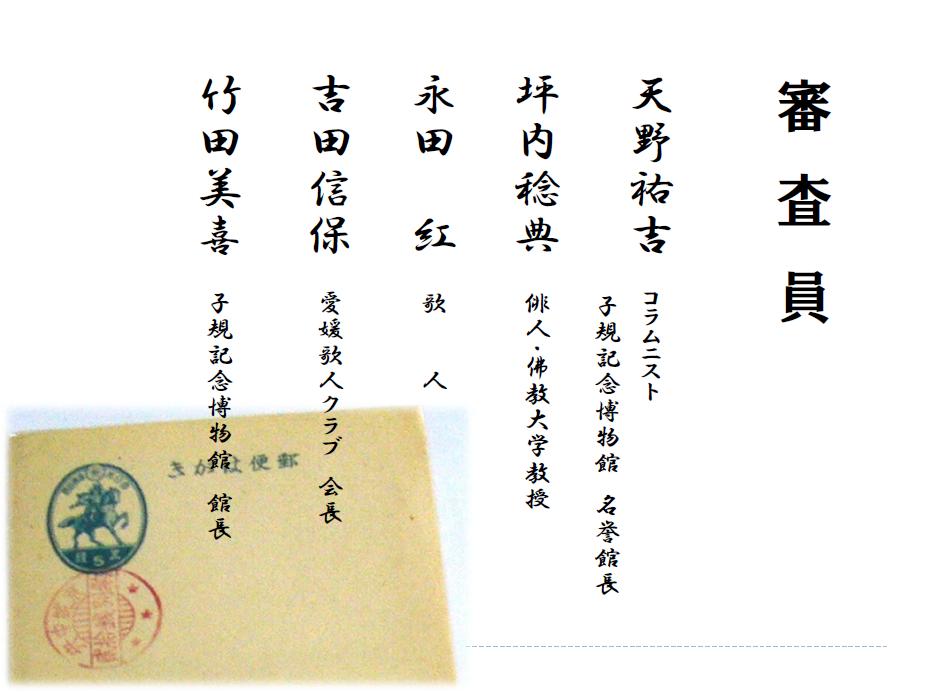 審査員
天野祐吉
コラムニスト
子規記念博物館 名誉館長
坪内稔典
俳人・佛教大学教授
永田 紅
歌 人
吉田信保
愛媛歌人クラブ 会長
竹田美喜
子規記念博物館 館長
きがは便郵